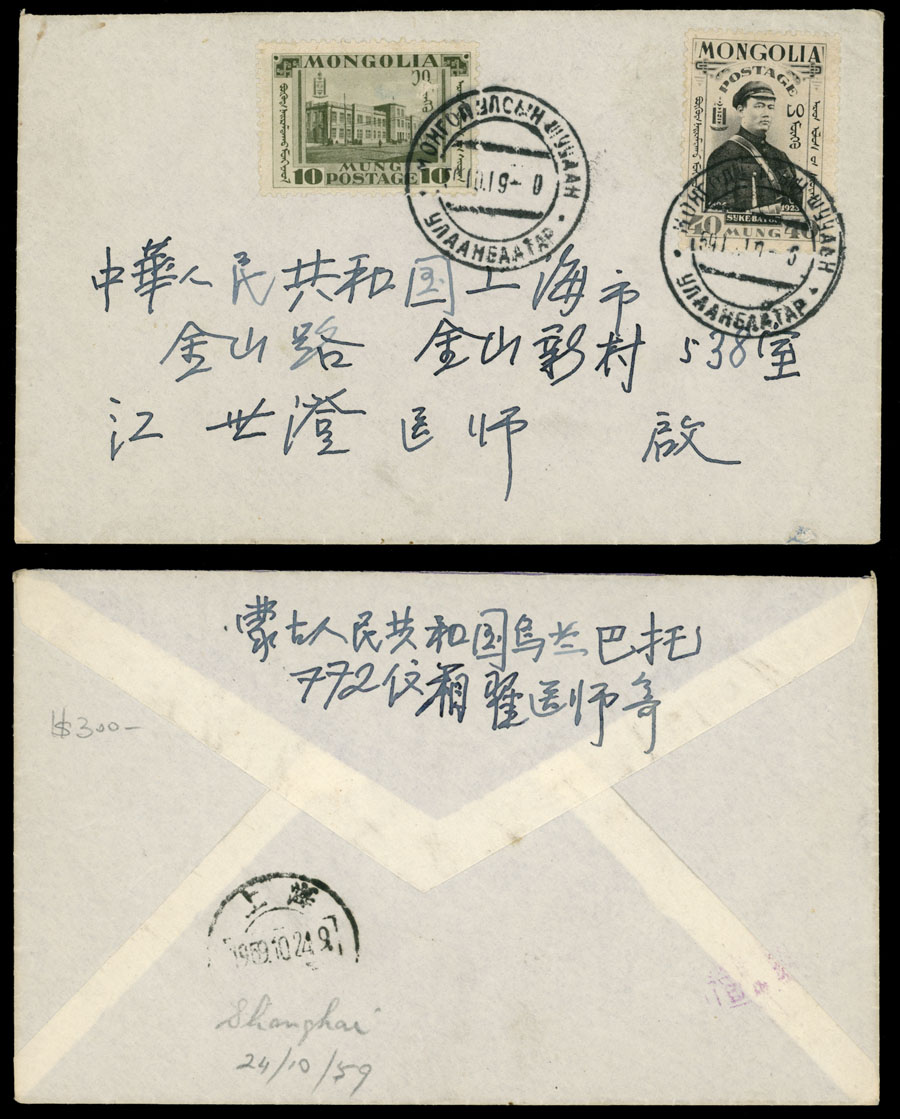 MONGOLIA
MUNG
10 POSTAGE 10
МОНГОЛ УЛСЫН ШУУДАН
УЛААНБААТАР
MONGOLIA
POSTAGE
1923
SUKE BATOR
40 MUNG 40
УЛААНБААТАР
中華人民共和国上海市
金山路 金山新村 538室
江世澄医师 啟
蒙古人民共和国乌兰巴托
772信箱翟医师寄
$300-
上海
1959.10.24.9
Shanghai
24/10/59